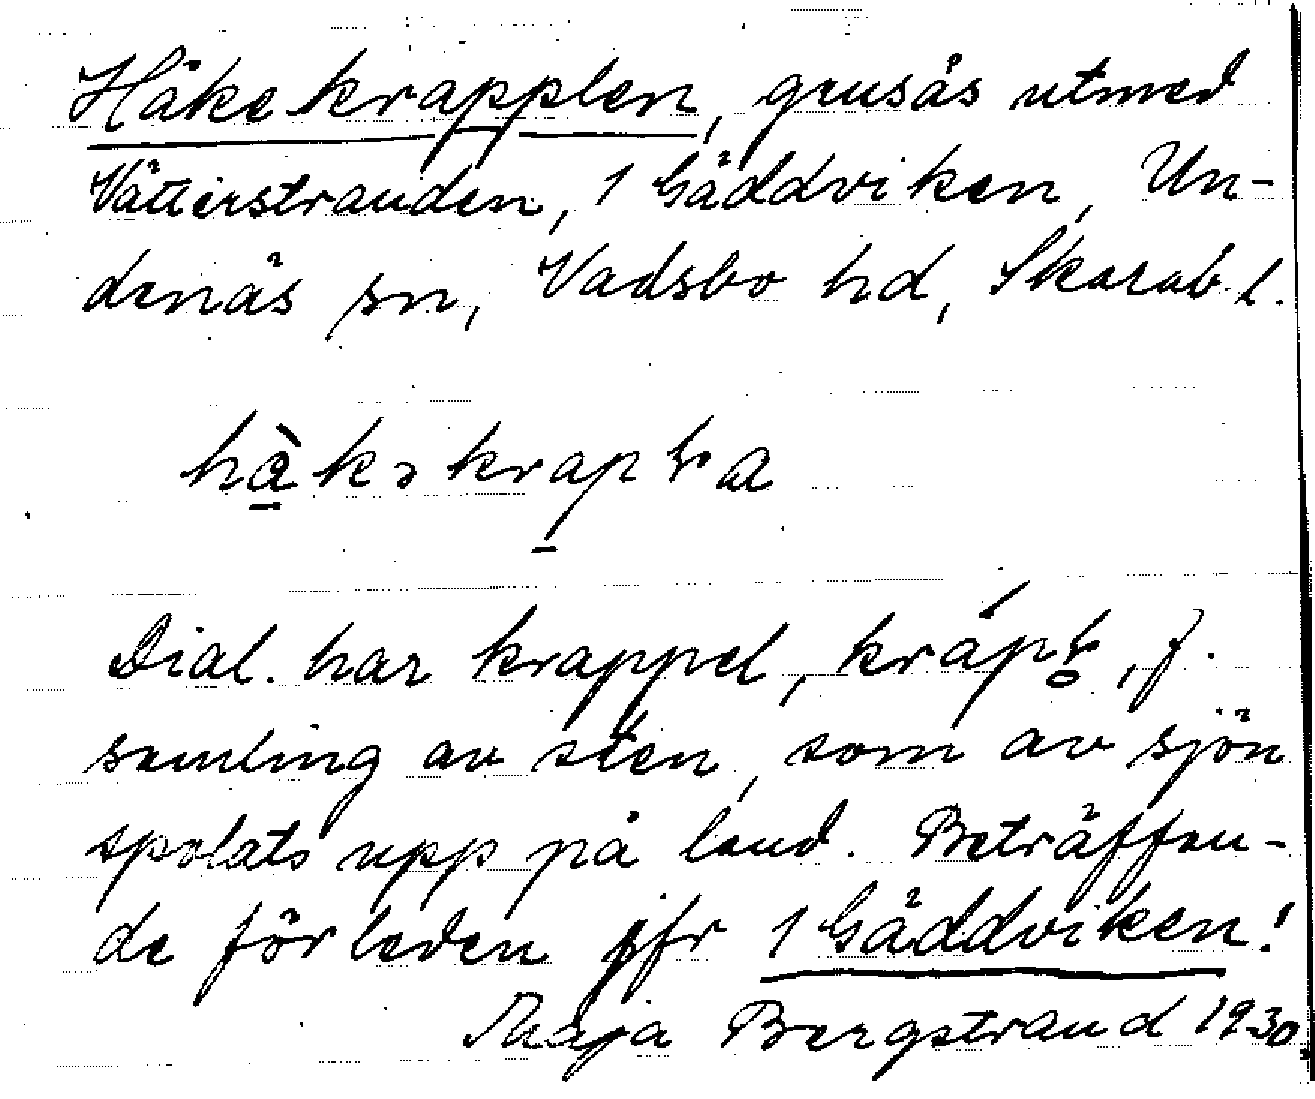 Häkekrapplen, grusås utmed
Vätterstranden, 1 Gäddviken, Un-
denäs sn, Vadsbo hd, Skarab. l.
Dial. har krappel, f.
samling av sten, som av sjön
spolats upp på land. Beträffan-
de förleden jfr 1 Gäddviken!
Maja Bergstrand 1930.